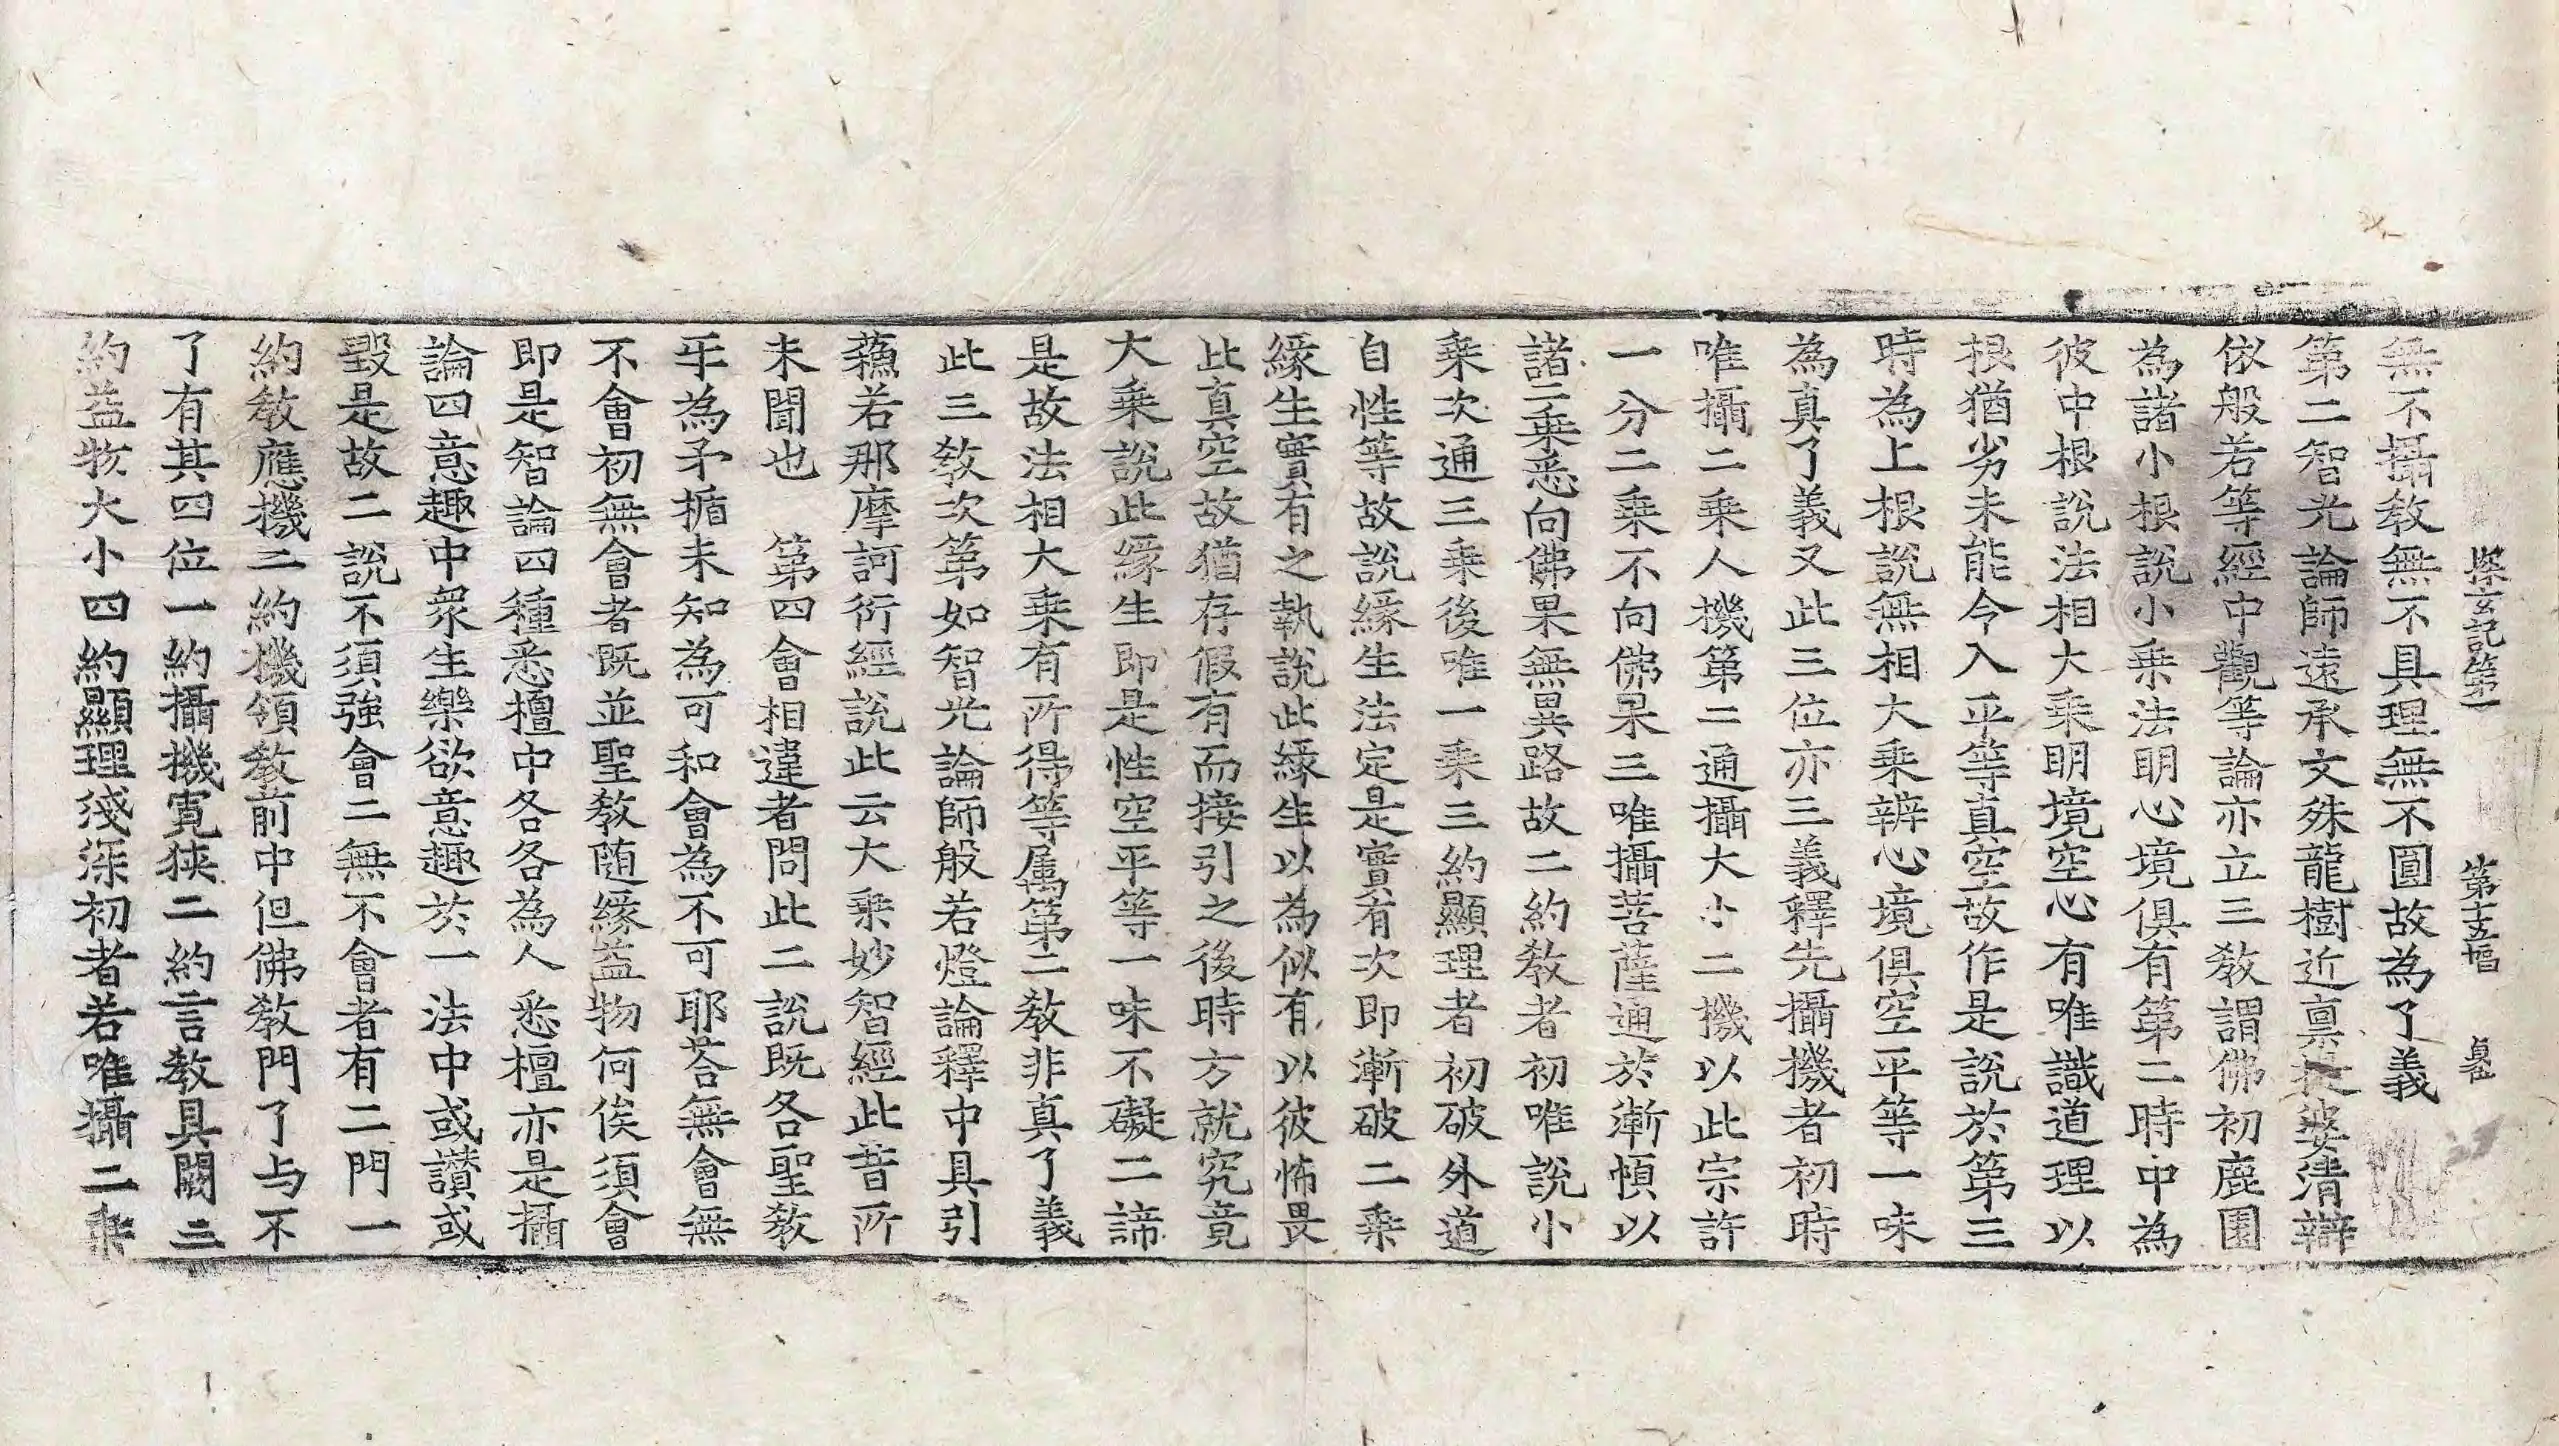 探玄記第一 第十五幅
無不攝敎無不具理無不圓故為了義
第二智光論師遠承文殊龍樹近稟提婆清辯
依般若等經中觀等論亦立三敎謂佛初鹿園
為諸小根說小乗法明心境俱有第二時中為
彼中根說法相大乗明境空心有唯識道理以
根猶劣未能令入平等真空故作是說於第三
時為上根說無相大乗辨心境俱空平等一味
為真了義又此三位亦三義釋先攝機者初時
唯攝二乗人機第二通攝大小二機以此宗許
一分二乗不向佛果三唯攝菩薩通於漸頓以
諸二乗悉向佛果無異路故二約敎者初唯說小
乗次通三乗後唯一乗三約顯理者初破外道
自性等故說緣生法定是實有次即漸破二乗
緣生實有之執說此緣生以為似有以彼怖畏
此真空故猶存假有而接引之後時方就究竟
大乗說此緣生即是性空平等一味不礙二諦
是故法相大乗有所得等属第二敎非真了義
此三敎次第如智光論師般若燈論釋中具引
蘓若那摩訶衍經說此云大乗妙智經此昔所
未聞也 第四會相違者問此二說既各聖敎
牙為矛楯未知為可和會為不可耶荅無會無
不會初無會者既並聖敎随緣益物何俟須會
即是智論四種悉檀中各各為人悉檀亦是攝
論四意趣中衆生樂欲意趣於一法中或讃或
毀是故二說不須強會二無不會者有二門一
約敎應機二約機領敎前中但佛敎門了与不
了有其四位一約攝機寛狹二約言敎具闕三
約益物大小四約顯理淺深初者若唯攝二乗